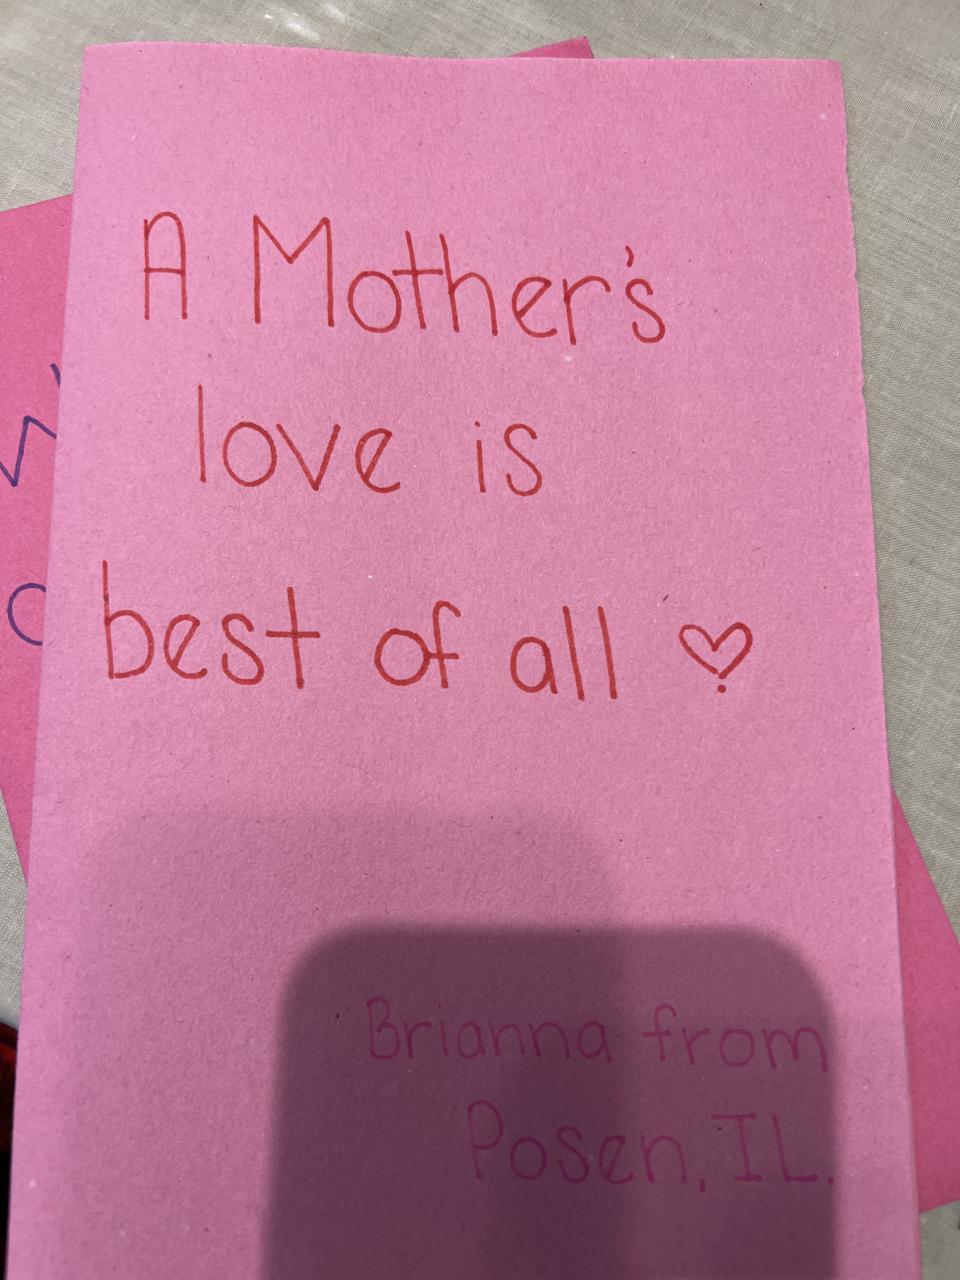 A Mother's
love is
best of all ♡
Brianna from
Posen, IL.